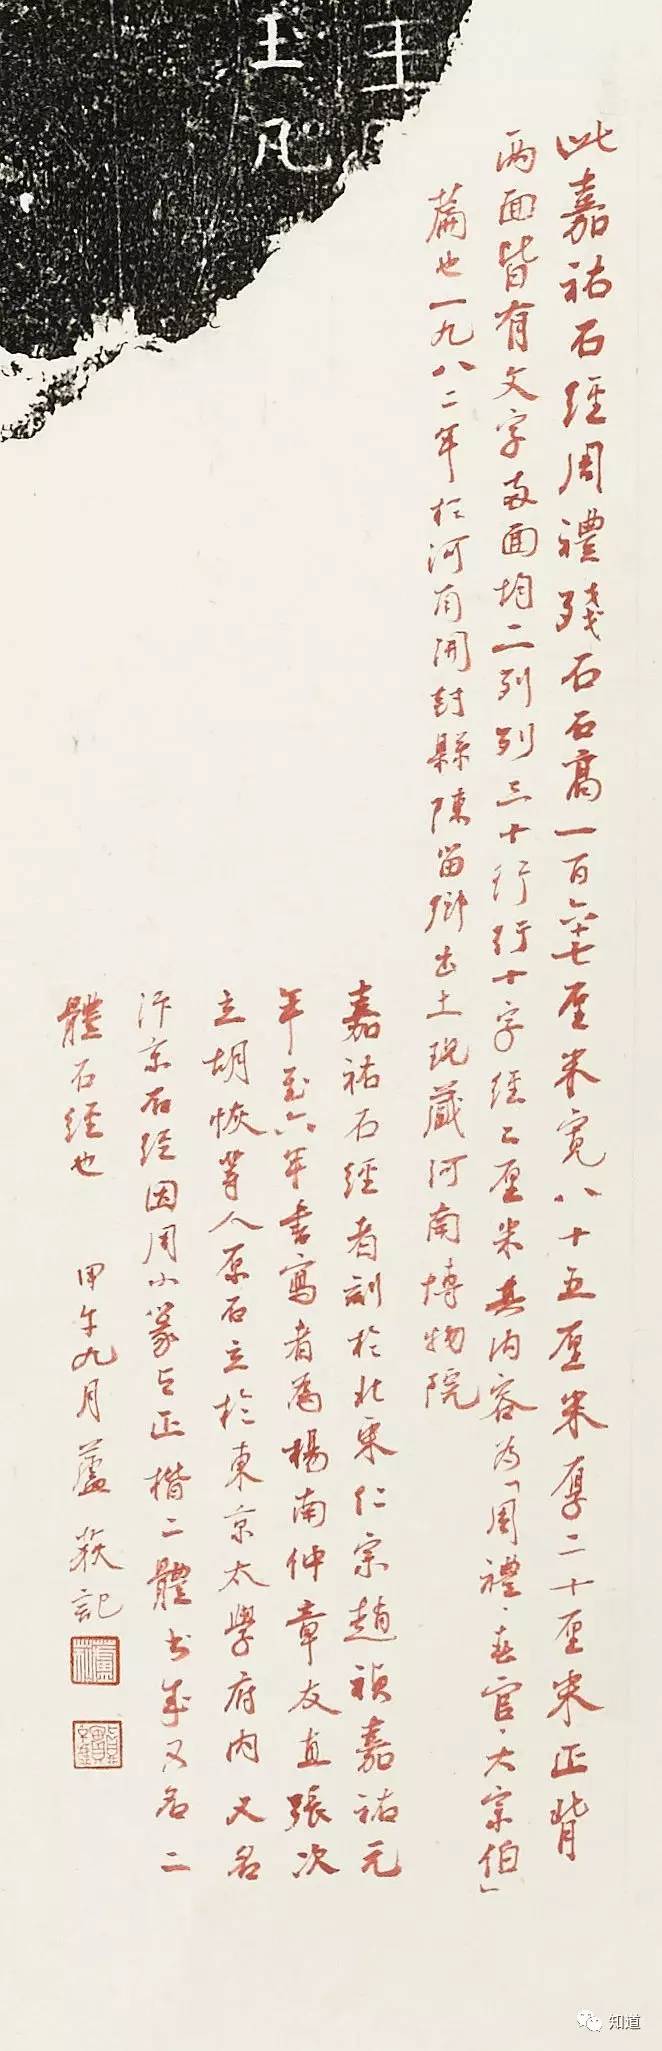 王
玉凡
此嘉祐石經周禮殘石石高一百六十七厘米寬八十五厘米厚二十厘米正背
兩面皆有文字每面均二列列三十行行十字字經二厘米其內容为「周禮·春官·大宗伯」
篇也一九八二年於河南開封縣陳留鄉出土現藏河南博物院
嘉祐石經者刻於北宋仁宗趙禎嘉祐元
年至六年書寫者為楊南仲章友直張次
立胡恢等人原石立於東京太學府內又名
汴京石經因用小篆与正楷二體書成又名二
體石經也
甲午九月蘆荻記
知道